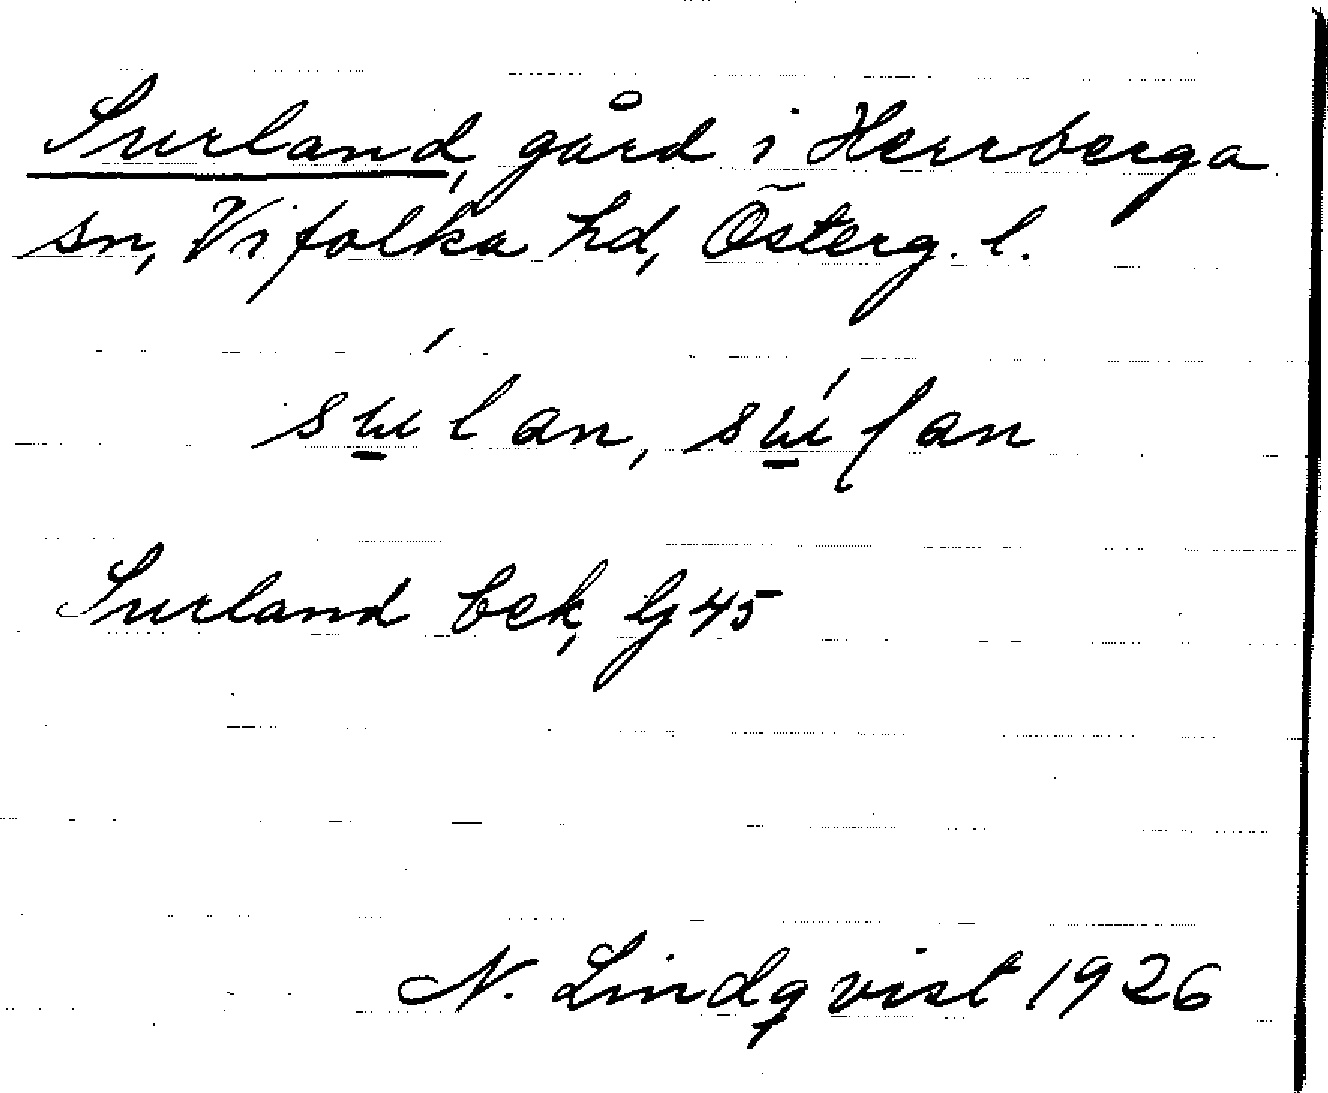 Surland, gård i Herrberga
sn, Vifolka hd, Österg. l.
Surland bek, Gj 45
N. Lindqvist 1926